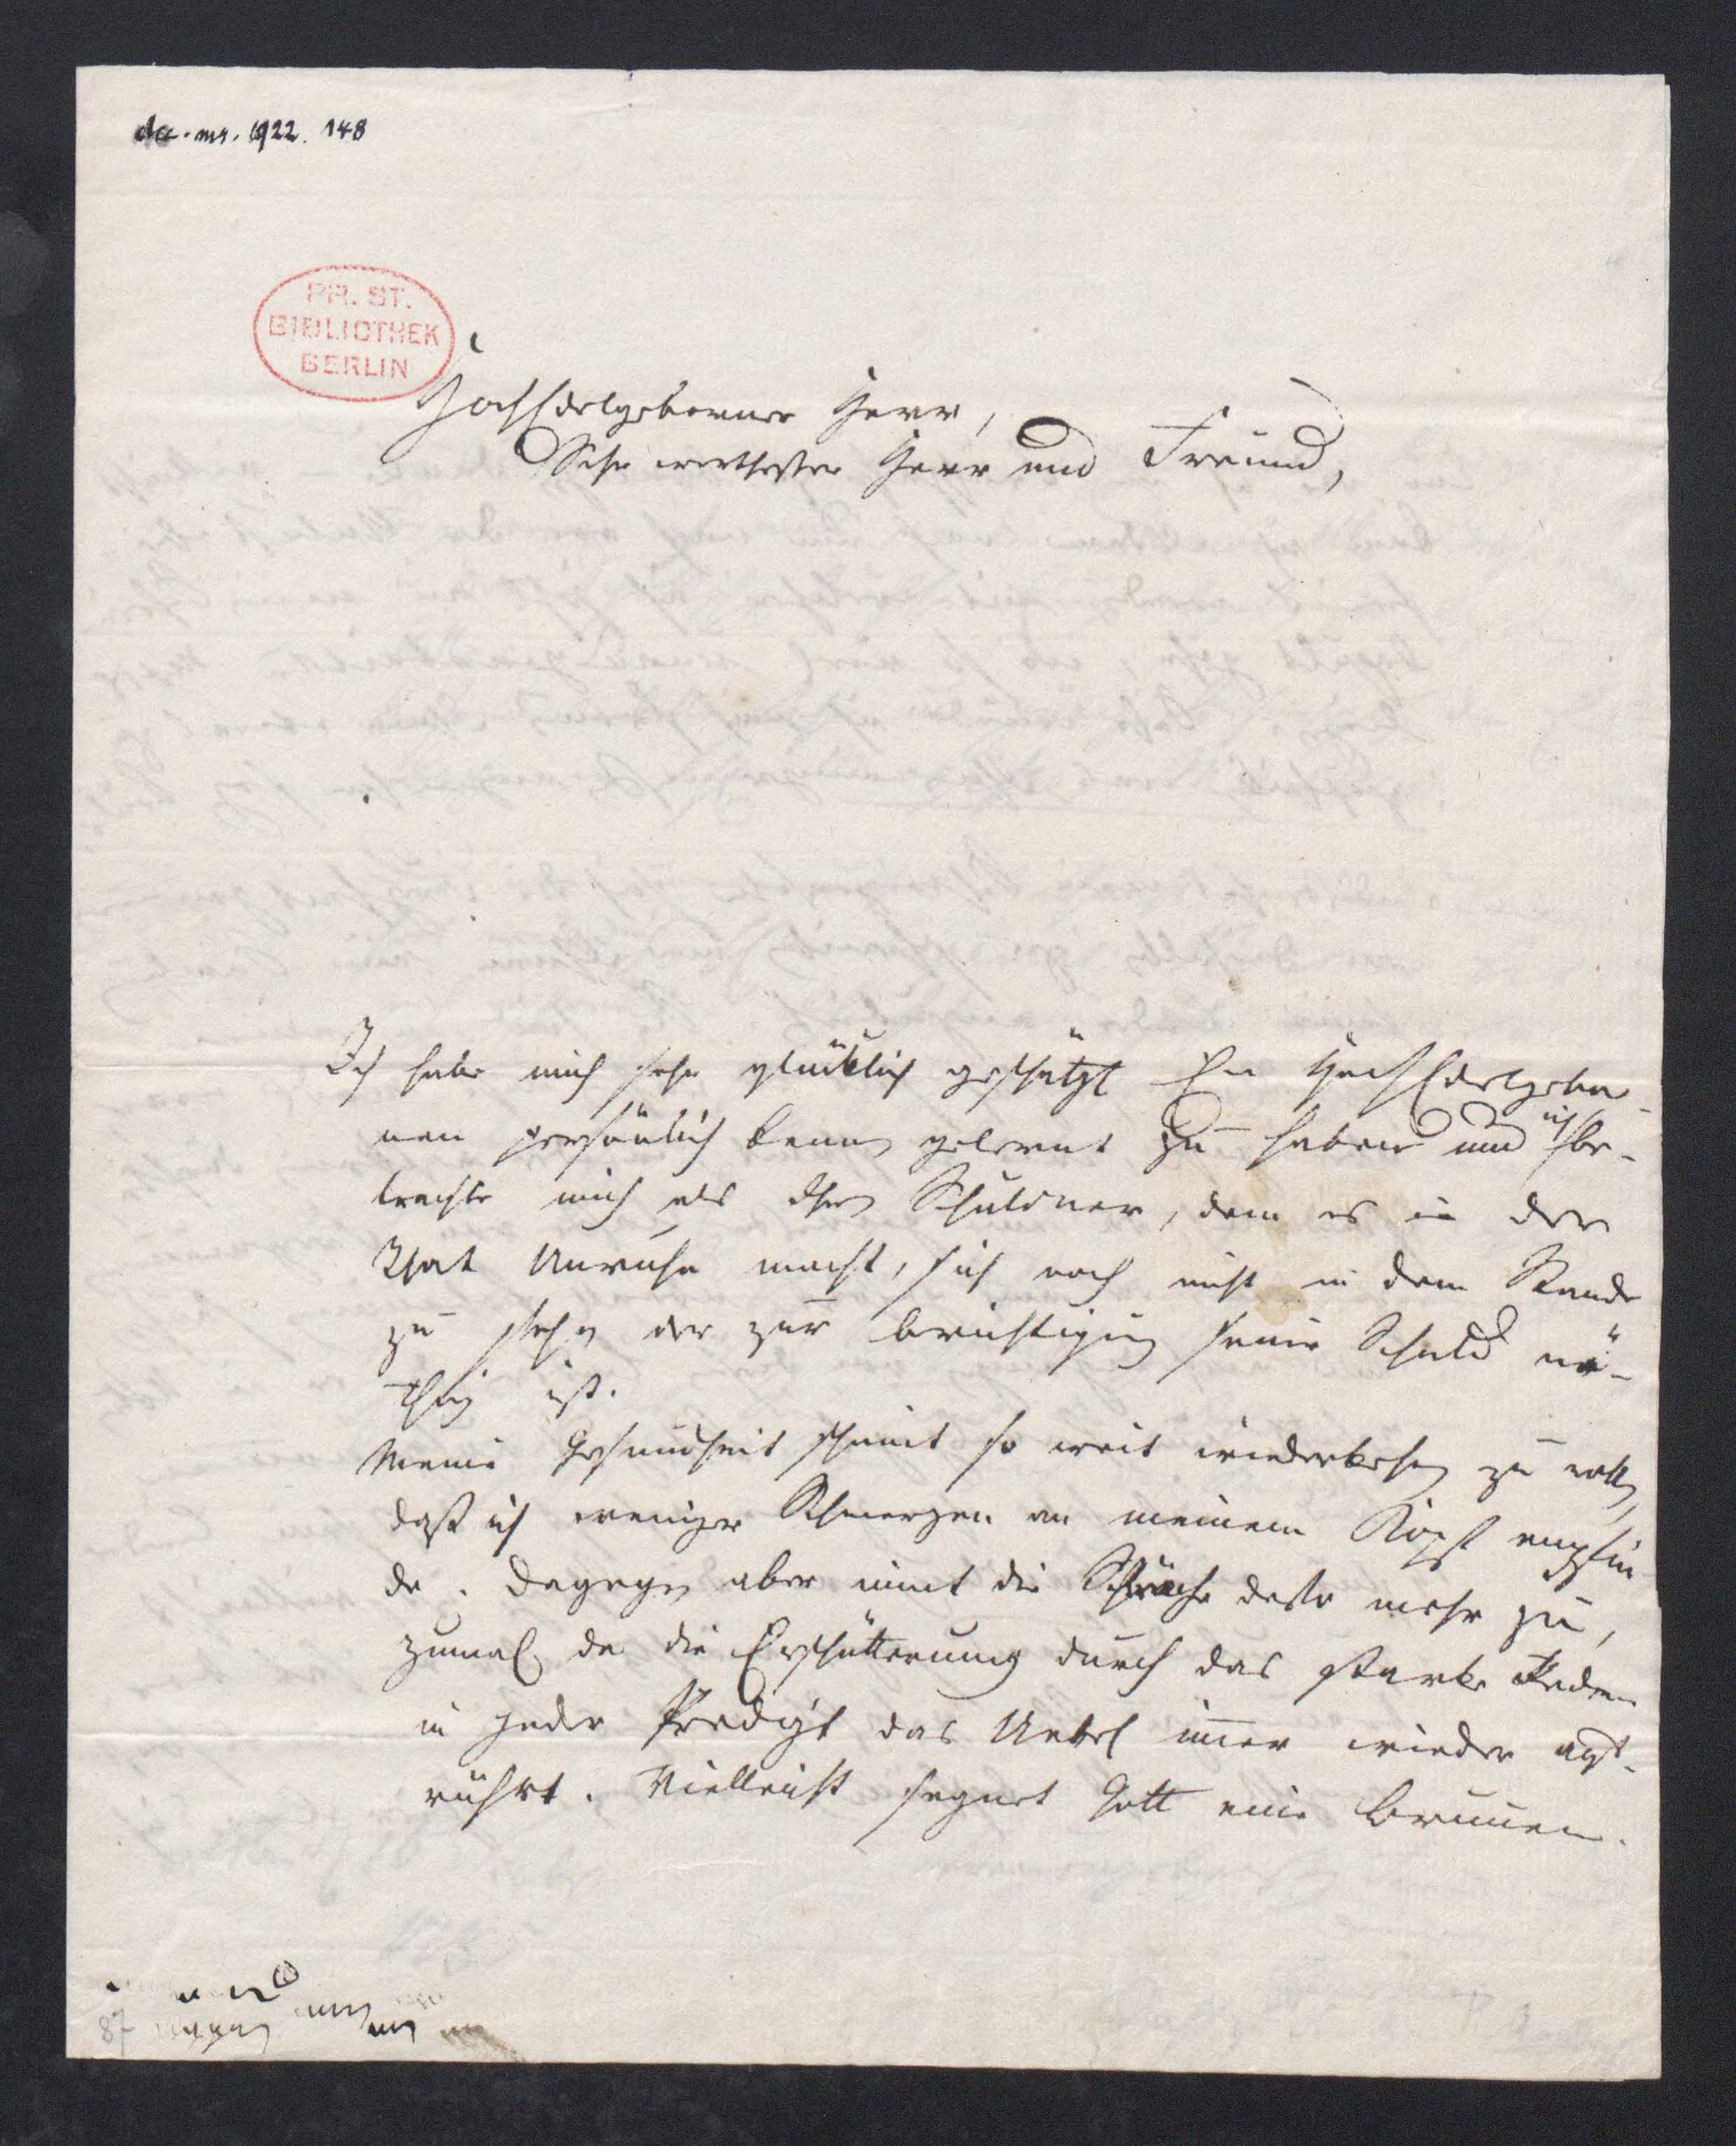 acc. ms. 1922. 148
PR. ST.
BIBLIOTHEK
BERLIN
HochEdelgeborner Herr,
Sehr werthester Herr und Freund,
Ich habe mich sehr glücklich geschätzt Ew HochEdelgebor-
nen persönlich kennen gelernt zu haben und ich be-
trachte mich als Ihren Schuldner, dem es in der
That Unruhe macht, sich noch nicht in dem Stande
zu sehen der zur berichtigung seiner Schuld nö-
thig ist.
Meine Gesundheit scheint so weit wiederkehren zu wollen,
daß ich weniger Schmerzen an meinem Kopf empfin
de. Dagegen aber nimt die Schwäche desto mehr zu,
zumal da die Erschütterung durch das starke Reden
in jeder Predigt das Uebel immer wieder auf-
rührt. Vielleicht segnet Gott eine Brunnen-
87